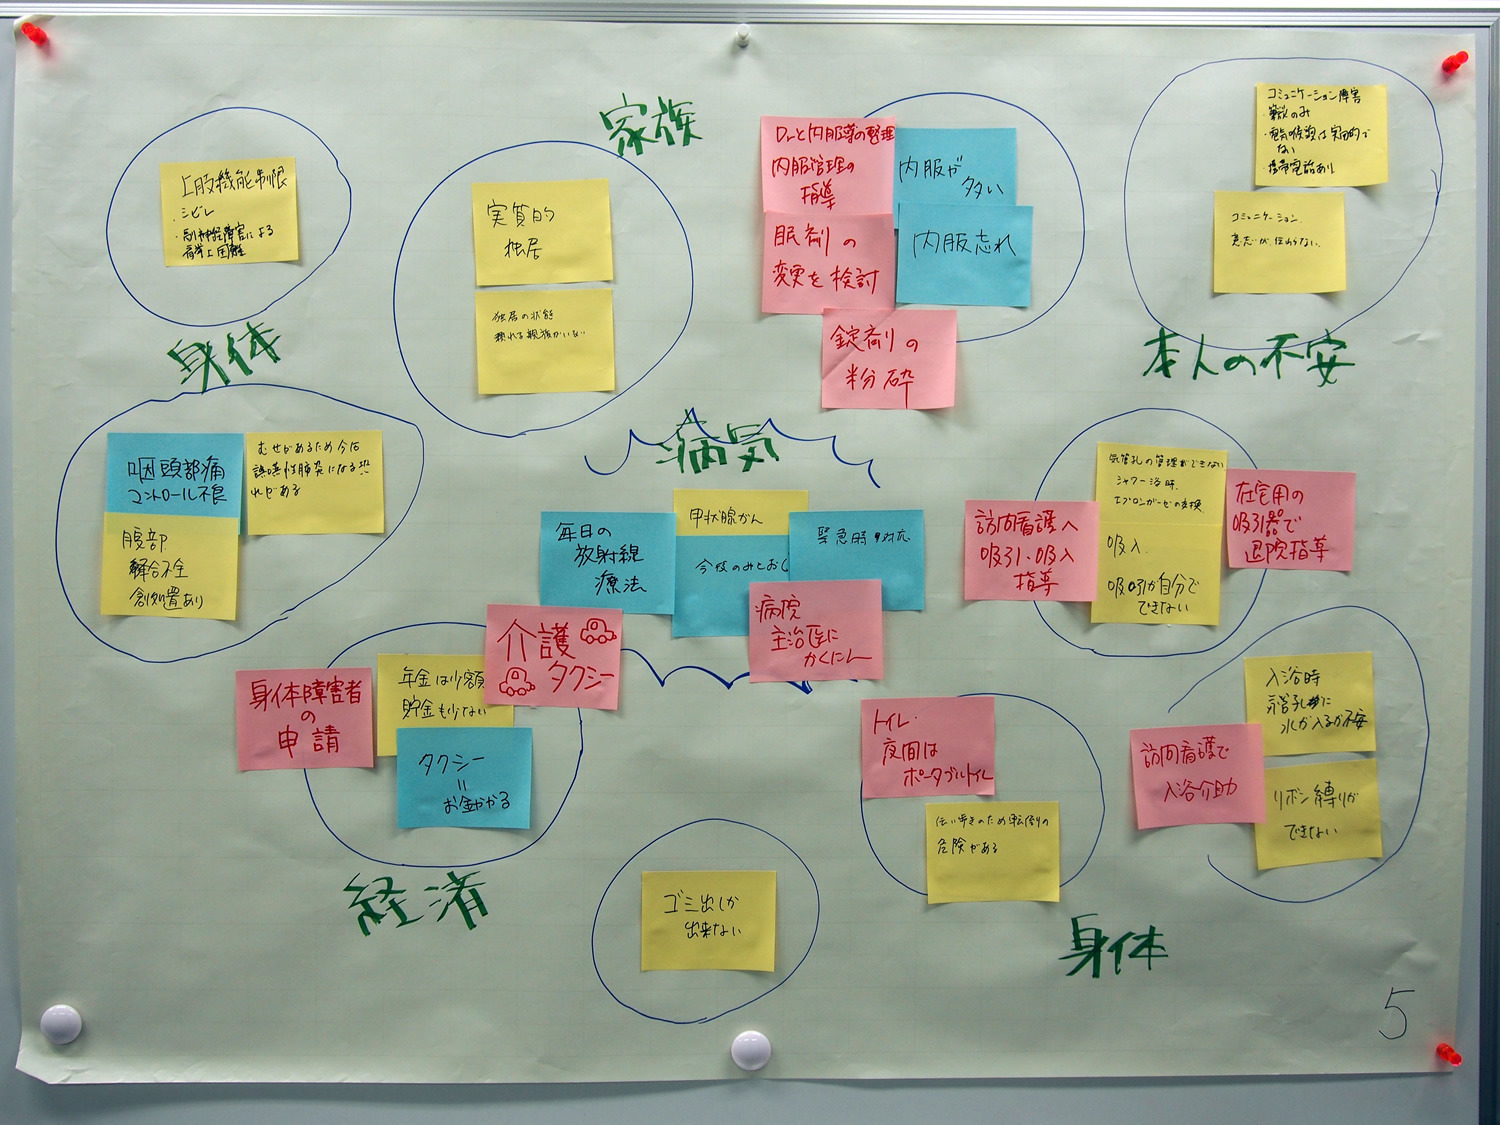 家族
上肢機能制限
・シビレ
・副神経障害による
肩挙上困難
身体
実質的
独居
独居の状態
頼れる親族がいない
Drと内服薬の整理
内服管理の
指導
内服が
多い
眠剤の
変更を検討
内服忘れ
錠剤の
粉砕
コミュニケーション障害
筆談のみ
・電気の喉頭は実用的で
ない
・携帯電話あり
コミュニケーション
意志が伝わらない
本人の不安
咽頭部痛
コントロール不良
むせがあるため今后
誤嚥性肺炎になる恐
れがある
腹部
縫合不全
創処置あり
病気
毎日の
放射線
療法
甲状腺がん
今後のみとおし
緊急時の対応
病院
主治医に
かくにん
気管孔の管理ができない
シャワー浴時
エプロンガーゼの交換
訪問看護へ
吸引・吸入
指導
在宅用の
吸引器で
退院指導
吸入
吸引が自分で
できない
身体障害者
の
申請
年金は少額
貯金も少ない
介護
タクシー
タクシー
=
お金かかる
経済
ゴミ出しが
出来ない
トイレ
夜間は
ポータブルトイレ
伝い歩きのため転倒の
危険がある
身体
入浴時
水が入るか不安
訪問看護で
入浴介助
リボン縛りが
できない
5